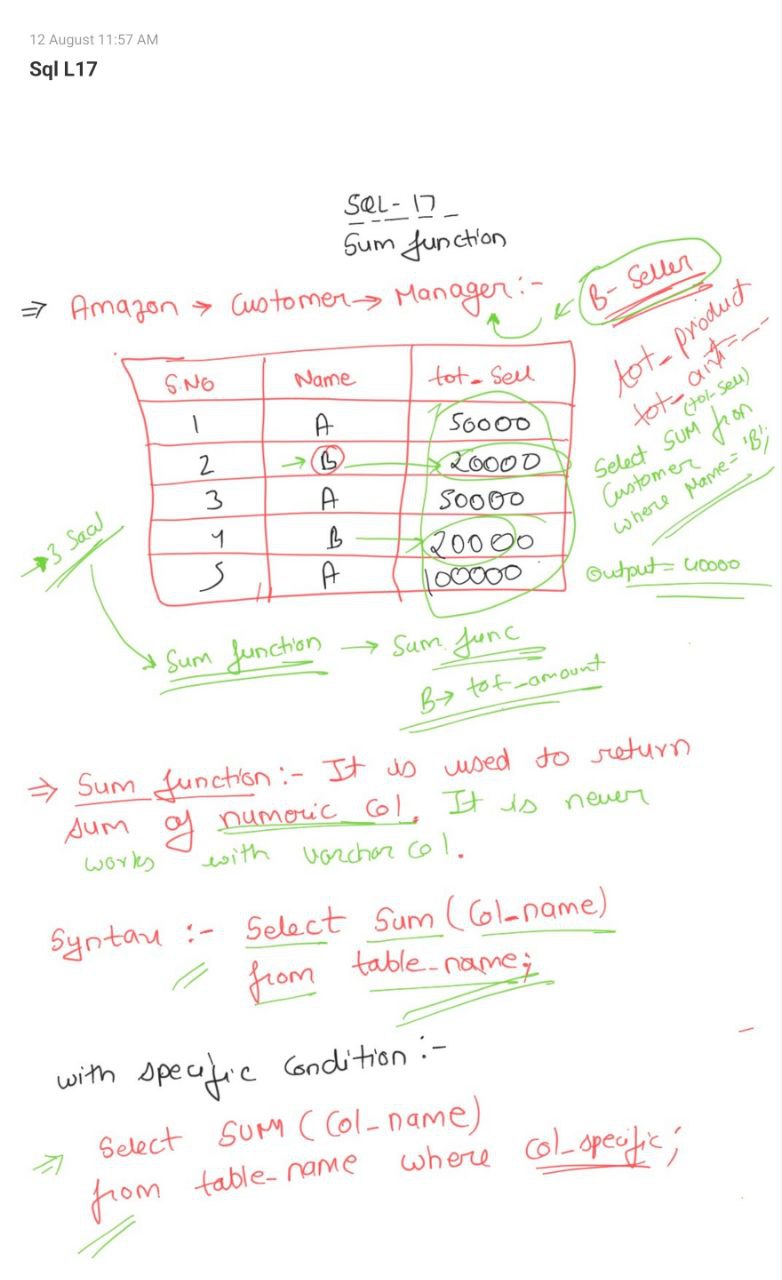 12 August 11:57 AM
Sql L17
SQL-17
Sum function
⇒ Amazon → Customer → Manager :-
B- Seller
tot_product
tot_amt = __
S.No Name tot_Sell
1 A 50000
2 → B 20000
3 A 50000
4 B 20000
5 A 100000
Select SUM (tot-Sell) from
Customer
where Name= 'B';
Output = 40000
→ 3 Saal
Sum function → Sum func
B→ tot_amount
⇒ Sum function :- It is used to return
sum of numeric col. It is never
works with varchar col.
Syntax :- Select Sum (Col_name)
from table_name;
with specific Condition :-
⇒ Select SUM (Col_name)
from table_name where col_specific;